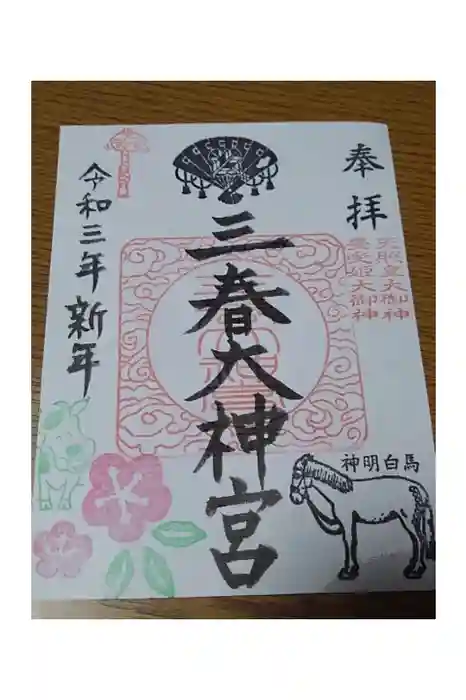 奉拝
天照皇大御神
豊受姫大御神
三春大神宮
令和三年新年
神明白馬